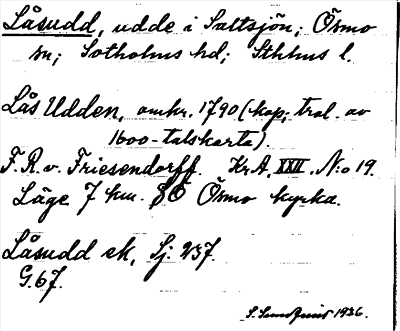 Låsudd, udde i Saltsjön; Ösmo
sn; Sotholms hd; Sthlms l.
Lås Udden, omkr. 1790 (kop; trol. av
1600-talskarta).
F. R. v. Friesendorff. Kr A. XXII. N:o 19.
Läge 7 km. SO Ösmo kyrka.
Låsudd ek, Sj. 237.
G. 67.
S. Sundquist 1936.